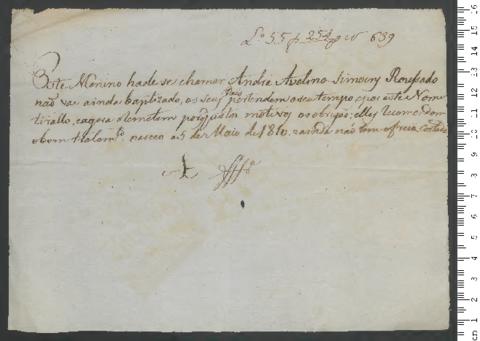 Lº 55 f 254 Nº 639
Este Menino hade se chamar André Avelino Simoens Rousado
não vai ainda baptizado, os seus Pais pertendem a seu tempo, por este Nome
tirallo, e agora o remetem por justos motivos os obrigão; elles recomendam
o bom tratamto. nasceo a 5 de Maio de 1810. ainda não tem